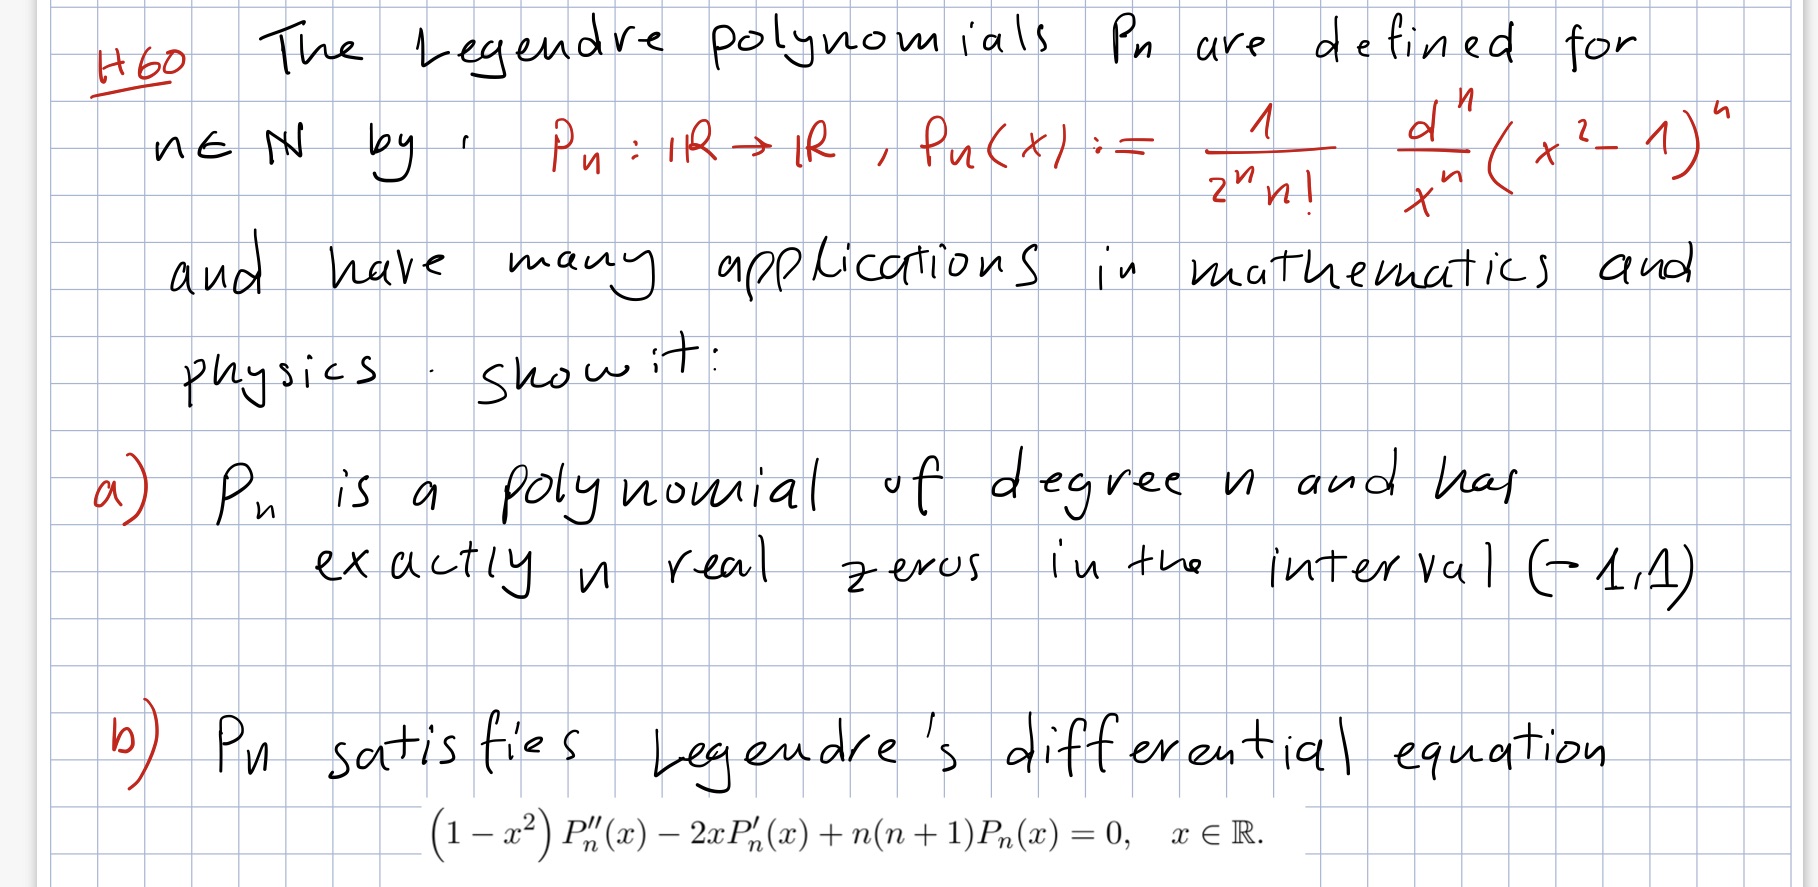 H60 The Legendre polynomials Pn are defined for
n ∈ ℕ by: Pn : ℝ → ℝ, Pn(x) := 1/(2^n n!) d^n/x^n (x^2 - 1)^n
and have many applications in mathematics and
physics. show it:
a) Pn is a polynomial of degree n and has
exactly n real zeros in the interval (-1,1)
b) Pn satisfies Legendre's differential equation
(1 − x^2) P_n''(x) − 2xP_n'(x) + n(n + 1)P_n(x) = 0, x ∈ ℝ.